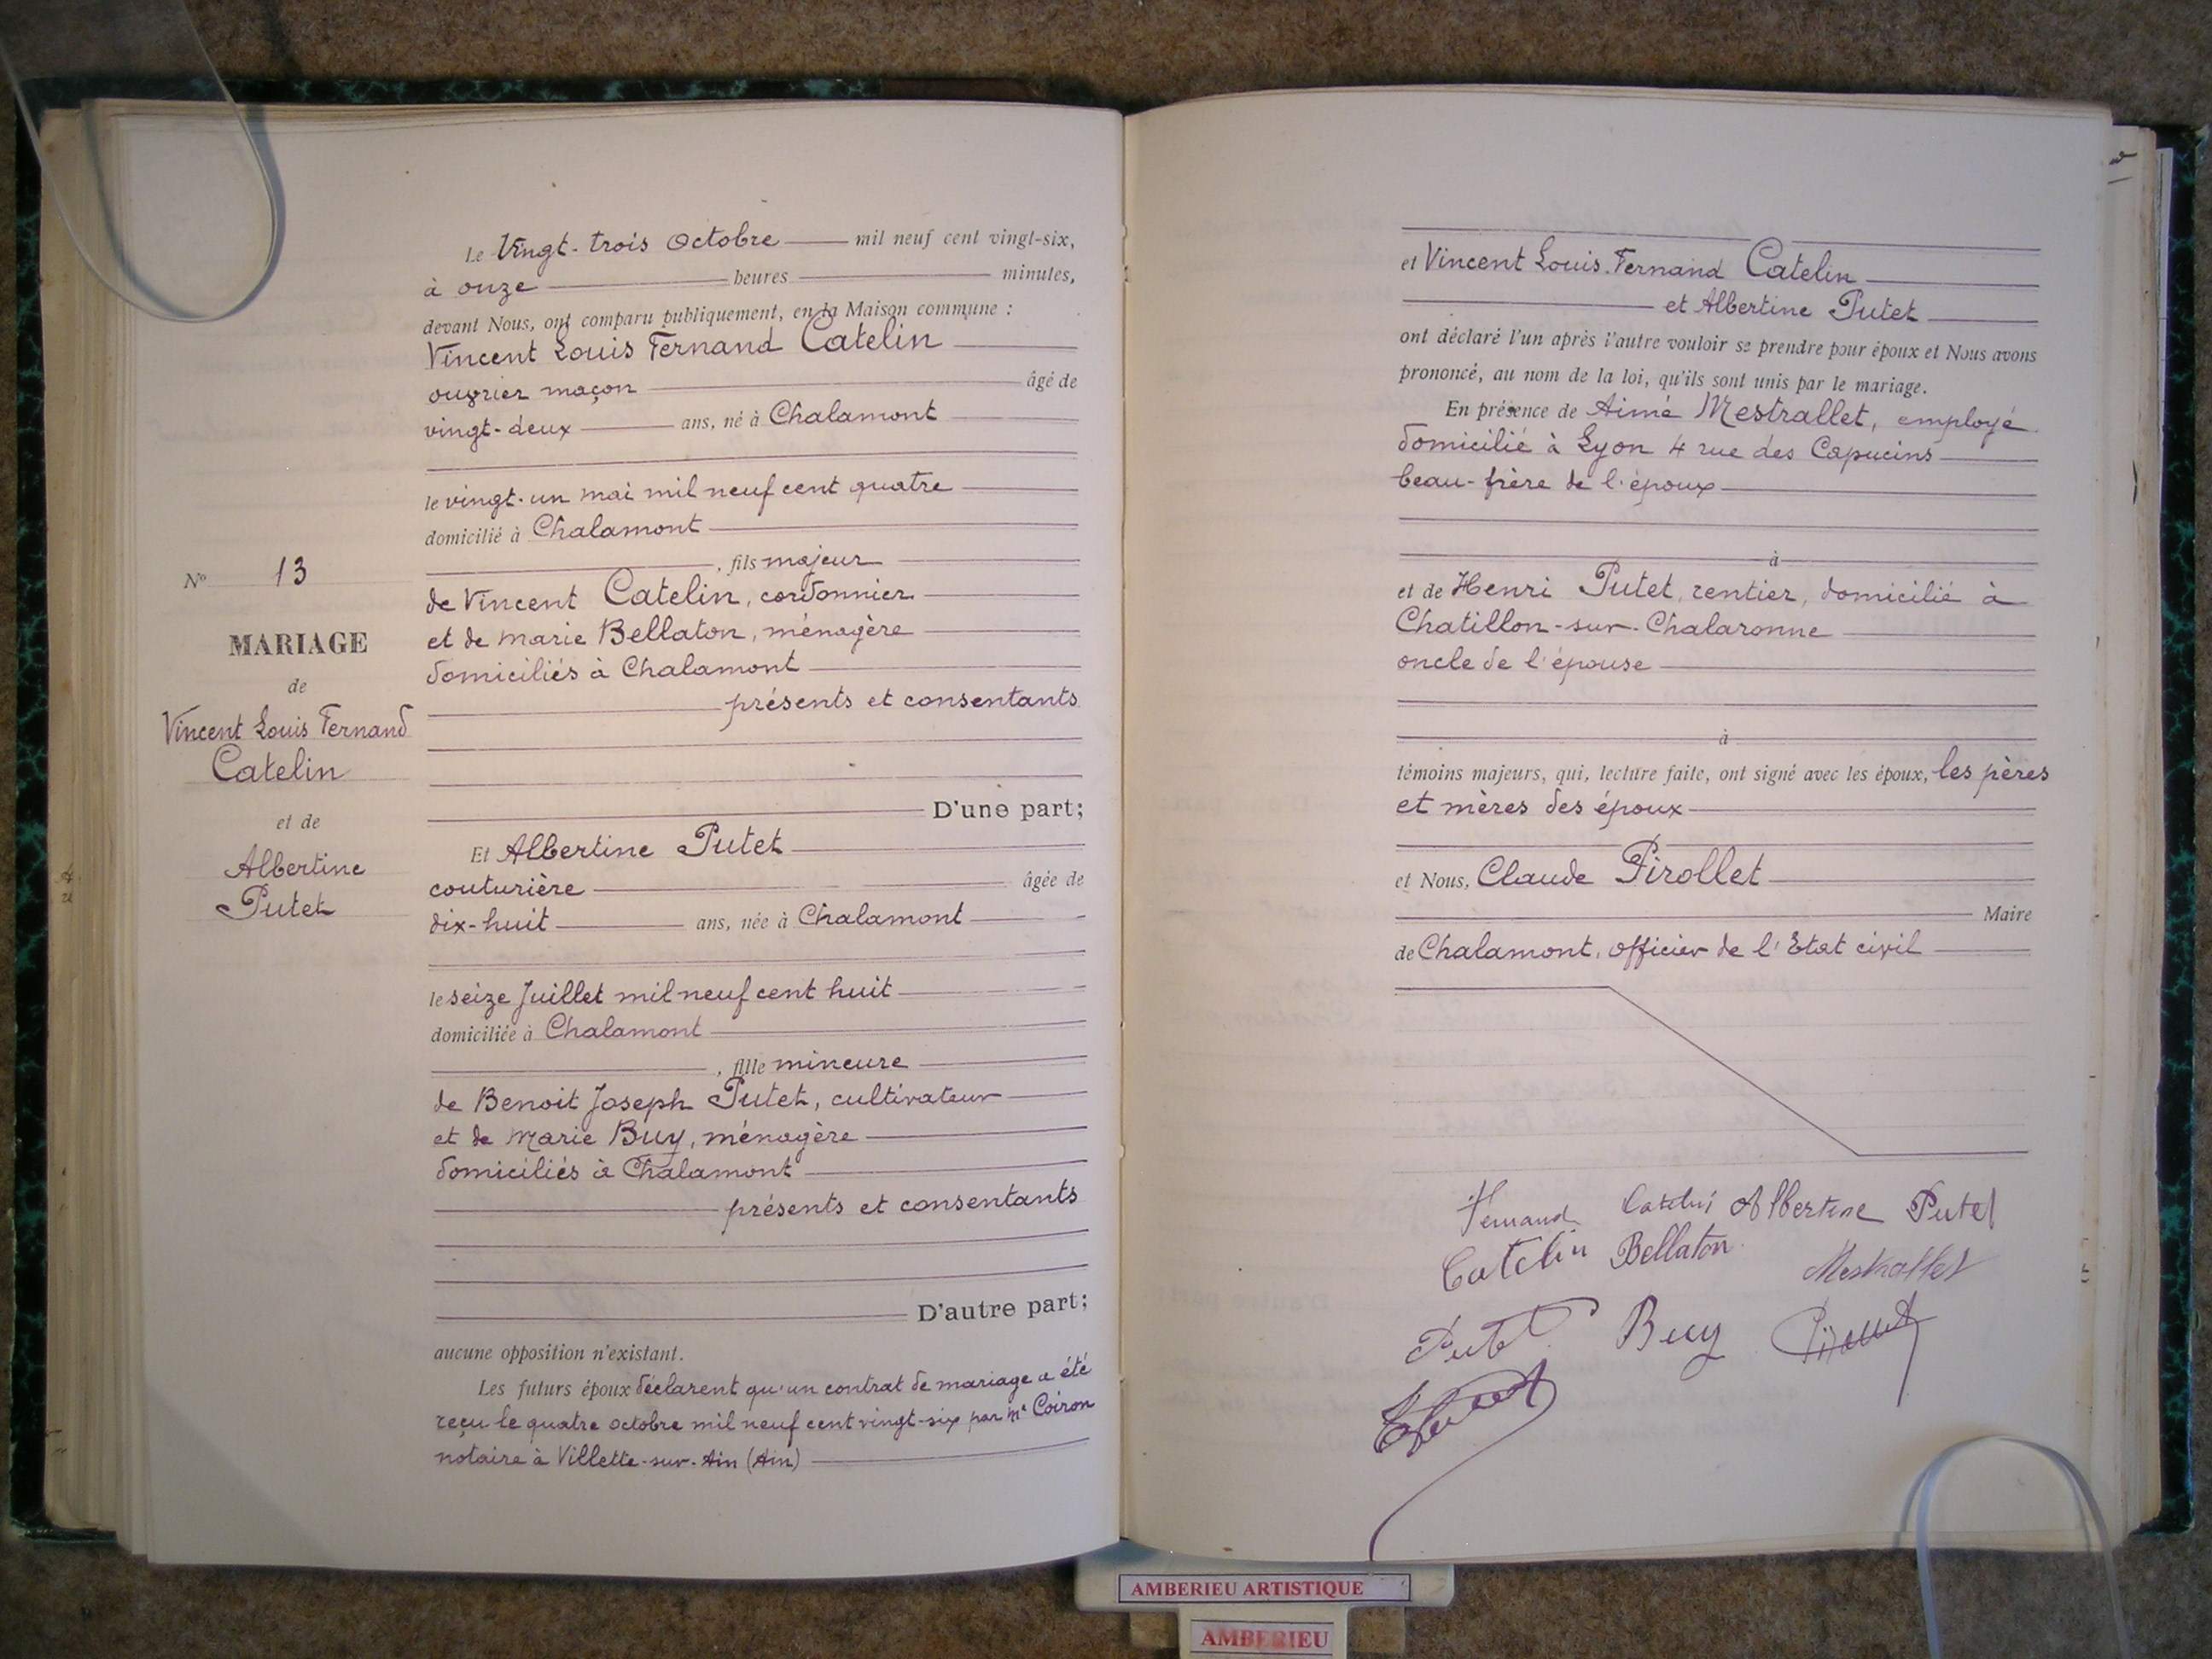 Le Vingt-trois Octobre mil neuf cent vingt-six,
à onze heures minutes,
devant Nous, ont comparu publiquement, en la Maison commune :
Vincent Louis Fernand Catelin
ouvrier maçon âgé de
vingt-deux ans, né à Chalamont
le vingt-un mai mil neuf cent quatre
domicilié à Chalamont
, fils majeur
de Vincent Catelin, cordonnier
et de marie Bellaton, ménagère
domiciliés à Chalamont
présents et consentants
D'une part;
Et Albertine Putet
couturière âgée de
dix-huit ans, née à Chalamont
le seize Juillet mil neuf cent huit
domiciliée à Chalamont
, fille mineure
de Benoit Joseph Putet, cultivateur
et de Marie Buy, ménagère
domiciliés à Chalamont
présents et consentants
D'autre part;
aucune opposition n'existant.
Les futurs époux déclarent qu'un contrat de mariage a été
reçu le quatre octobre mil neuf cent vingt-six par Me Coiron
notaire à Villette-sur-Ain (Ain)
No 13
MARIAGE
de
Vincent Louis Fernand
Catelin
et de
Albertine
Putet
et Vincent Louis Fernand Catelin
et Albertine Putet
ont déclaré l'un après l'autre vouloir se prendre pour époux et Nous avons
prononcé, au nom de la loi, qu'ils sont unis par le mariage.
En présence de Aimé Mestrallet, employé
domicilié à Lyon 4 rue des Capucins
beau-frère de l'époux
à
et de Henri Putet, rentier, domicilié à
Chatillon-sur-Chalaronne
oncle de l'épouse
à
témoins majeurs, qui, lecture faite, ont signé avec les époux, les pères
et mères des époux
et Nous, Claude Pirollet
Maire
de Chalamont, officier de l'Etat civil
Fernand Catelin Albertine Putet
Catelin Bellaton Mestrallet
Putet Buy
AMBERIEU ARTISTIQUE
AMBERIEU